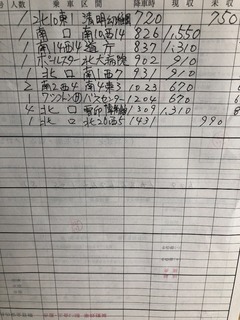 人数 乗車区間 降車時 現収 未収
1 北10東1 720 750
南口 南10西14 826 1,550
1 南14西14 道庁 837 1,310
1 北大病院 902 910
1 北口 南1西7 931 910
2 南4西4 南4東3 1023 670
1 ワシントンⅡ バスセンター 1204 670
4 北口 1309 1,310
1 北口 北20西5 1431 990